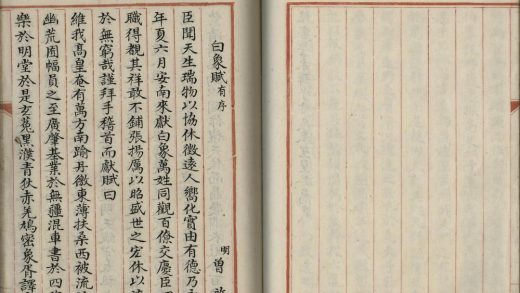 白象賦有序
明 曾
臣聞天生瑞物以協休徵遠人嚮化實由有德乃
年夏六月安南來獻白象萬姓同觀百僚交慶臣
職得觀其祥敢不鋪張揚厲以昭盛世之宏休以
於無窮哉謹拜手稽首而獻賦曰
維我高皇奄有萬方南踰丹徼東薄扶桑西被流
幽荒囿幅員之至廣肇基業於無疆混車書於四
樂於明堂於是玄菟黑濮青狄赤羌鳩密象胥譯